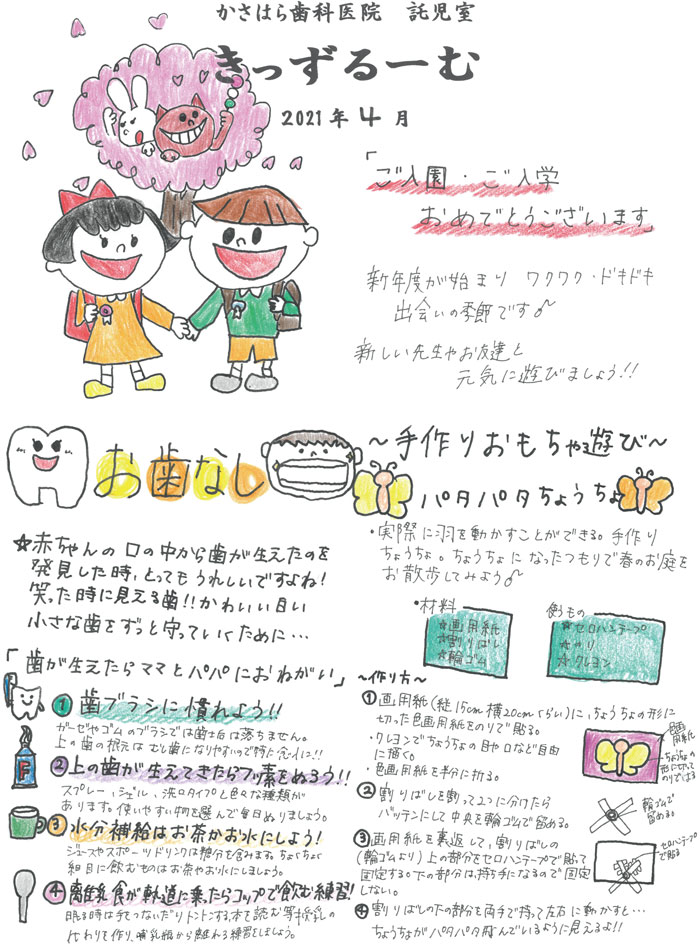 かさはら歯科医院 託児室
きっずるーむ
2021年4月
「ご入園・ご入学
おめでとうございます」
新年度が始まり ワクワク・ドキドキ
出会いの季節です♪
新しい先生やお友達と
元気に遊びましょう!!
お歯なし
☆赤ちゃんの口の中から歯が生えたのを
発見した時、とってもうれしいですよね!
笑った時に見える歯!!かわいい白い
小さな歯をずっと守っていくために…
「歯が生えたらママとパパにおねがい」
① 歯ブラシに慣れよう!!
ガーゼやゴムのブラシでは歯垢は落ちません。
上の歯の根元はむし歯になりやすいので特に念入りに!!
② 上の歯が生えてきたらフッ素をぬろう!!
スプレー、ジェル、洗口タイプと色々な種類が
あります。使いやすい物を選んで毎日ぬりましょう。
F
③ 水分補給はお茶かお水にしよう!
ジュースやスポーツドリンクは糖分を含みます。ちょくちょく
飲む物はお茶やお水にしましょう。
④ 離乳食が軌道に乗ったらコップで飲む練習!
眠る時は手をつないだりトントンする、本を読む等授乳の
代わりを作り、哺乳瓶から離れる練習をしましょう。
~手作りおもちゃ遊び~
パタパタちょうちょ
・実際に羽を動かすことができる。手作り
ちょうちょ。ちょうちょになったつもりで春のお庭を
お散歩してみよう♪
・材料
☆画用紙
☆割りばし
☆輪ゴム
使うもの
☆セロハンテープ
☆のり
☆クレヨン
~作り方~
①画用紙(縦15cm横20cmくらい)に、ちょうちょの形に
切った色画用紙をのりで貼る。
・クレヨンでちょうちょの目や口など自由
に描く。
・色画用紙を半分に折る。
色画用紙
ちょうちょの
形に切って
のりではる
②割りばしを割って2つに分けたら
バッテンにして中央を輪ゴムで留める。
輪ゴムで
留める。
③画用紙を裏返して、割りばしの
(輪ゴムより)上の部分をセロハンテープで貼って
固定する。下の部分は、持ち手になるので固定
しない。
セロハンテープ
で貼る
④割りばしの下の部分を両手で持って左右に動かすと…
ちょうちょがパタパタ飛んでいるように見えるよ!!